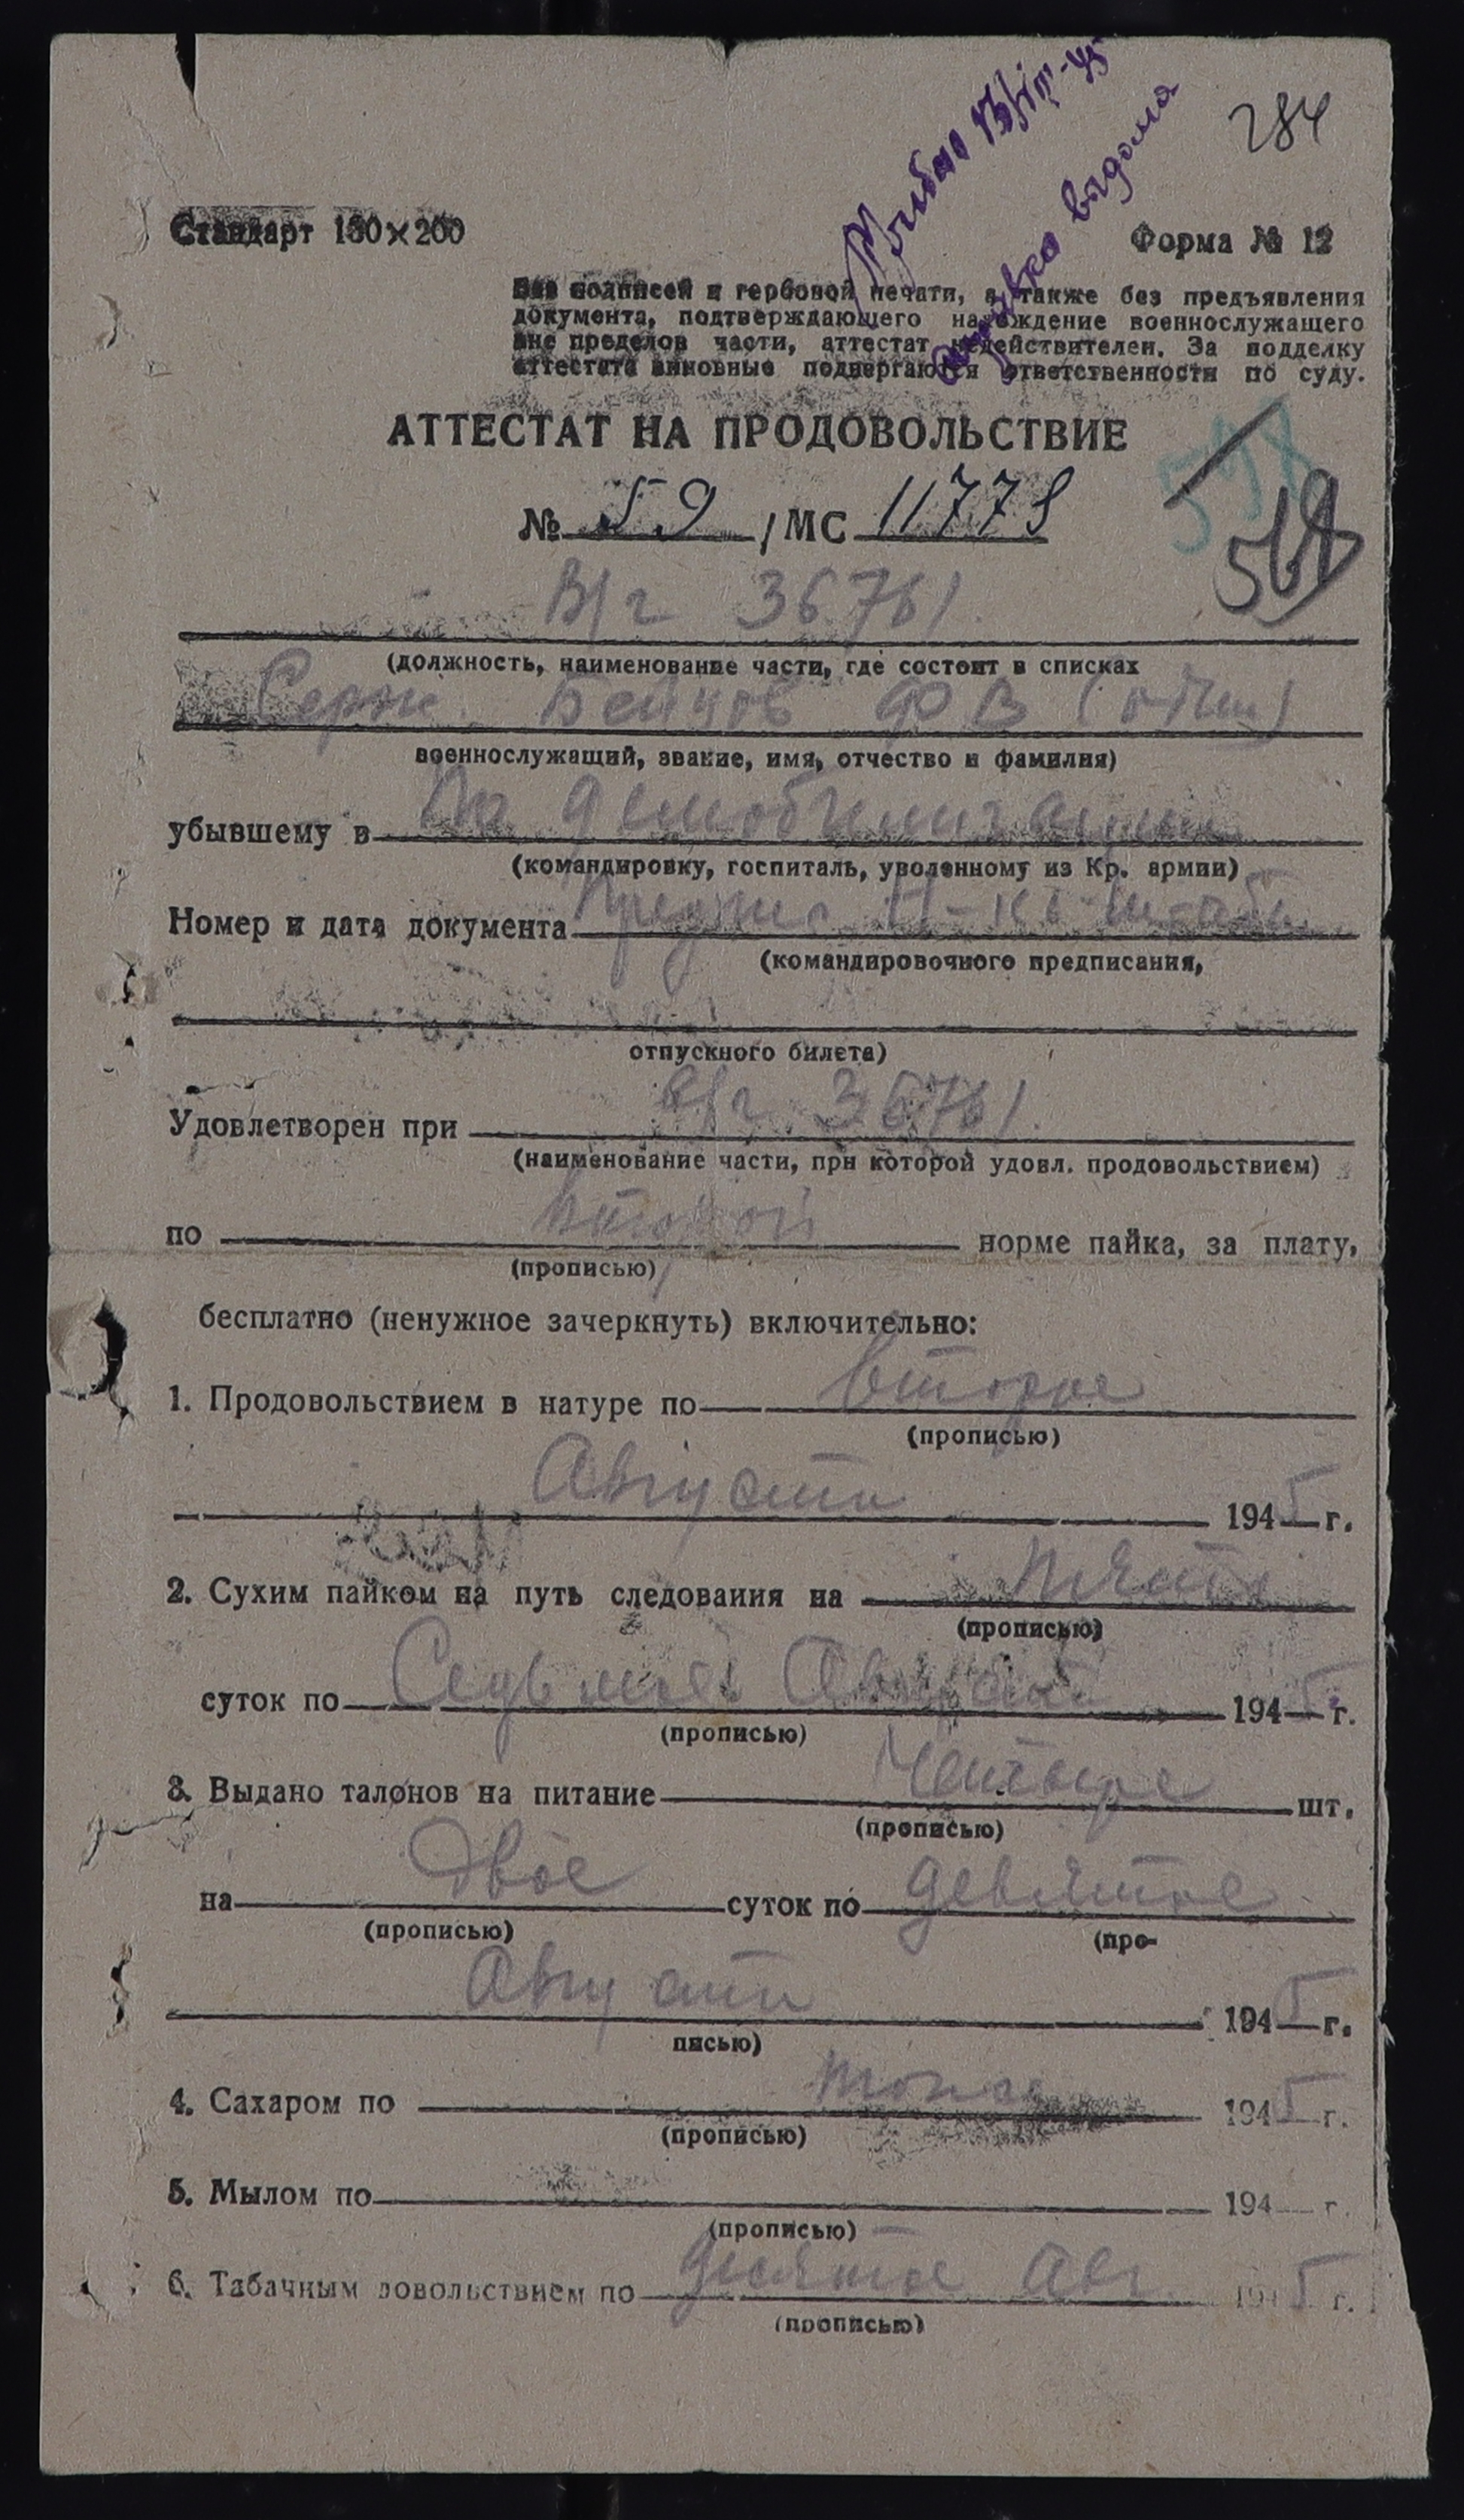 284
Прибыл 13/VIII-45
выдома
Стандарт 130×200
Форма № 12
Без подписей и гербовой печати, а также без предъявления
документа, подтверждающего нахождение военнослужащего
вне пределов части, аттестат недействителен. За подделку
аттестата виновные подвергаются ответственности по суду.
АТТЕСТАТ НА ПРОДОВОЛЬСТВИЕ
№ 59 /МС 11779
548
568
В/ч 36761
(должность, наименование части, где состоит в списках
Серж. Бейцов ФВ (один)
военнослужащий, звание, имя, отчество и фамилия)
убывшему в По демобилизации
(командировку, госпиталь, уволенному из Кр. армии)
Номер и дата документа Предпис Н-ка штаба
(командировочного предписания,
отпускного билета)
Удовлетворен при В/ч 36761.
(наименование части, при которой удовл. продовольствием)
по второй норме пайка, за плату,
(прописью)
бесплатно (ненужное зачеркнуть) включительно:
1. Продовольствием в натуре по второе
(прописью)
Августа 1945 г.
2. Сухим пайком на путь следования на пять
(прописью)
суток по Седьмое Августа 1945 г.
(прописью)
3. Выдано талонов на питание Четыре шт.
(прописью)
на двое суток по девятое
(прописью) (про-
Августа 1945 г.
писью)
4. Сахаром по тоже 1945 г.
(прописью)
5. Мылом по 194 г.
(прописью)
6. Табачным довольствием по десятое Авг. 1945 г.
(прописью)